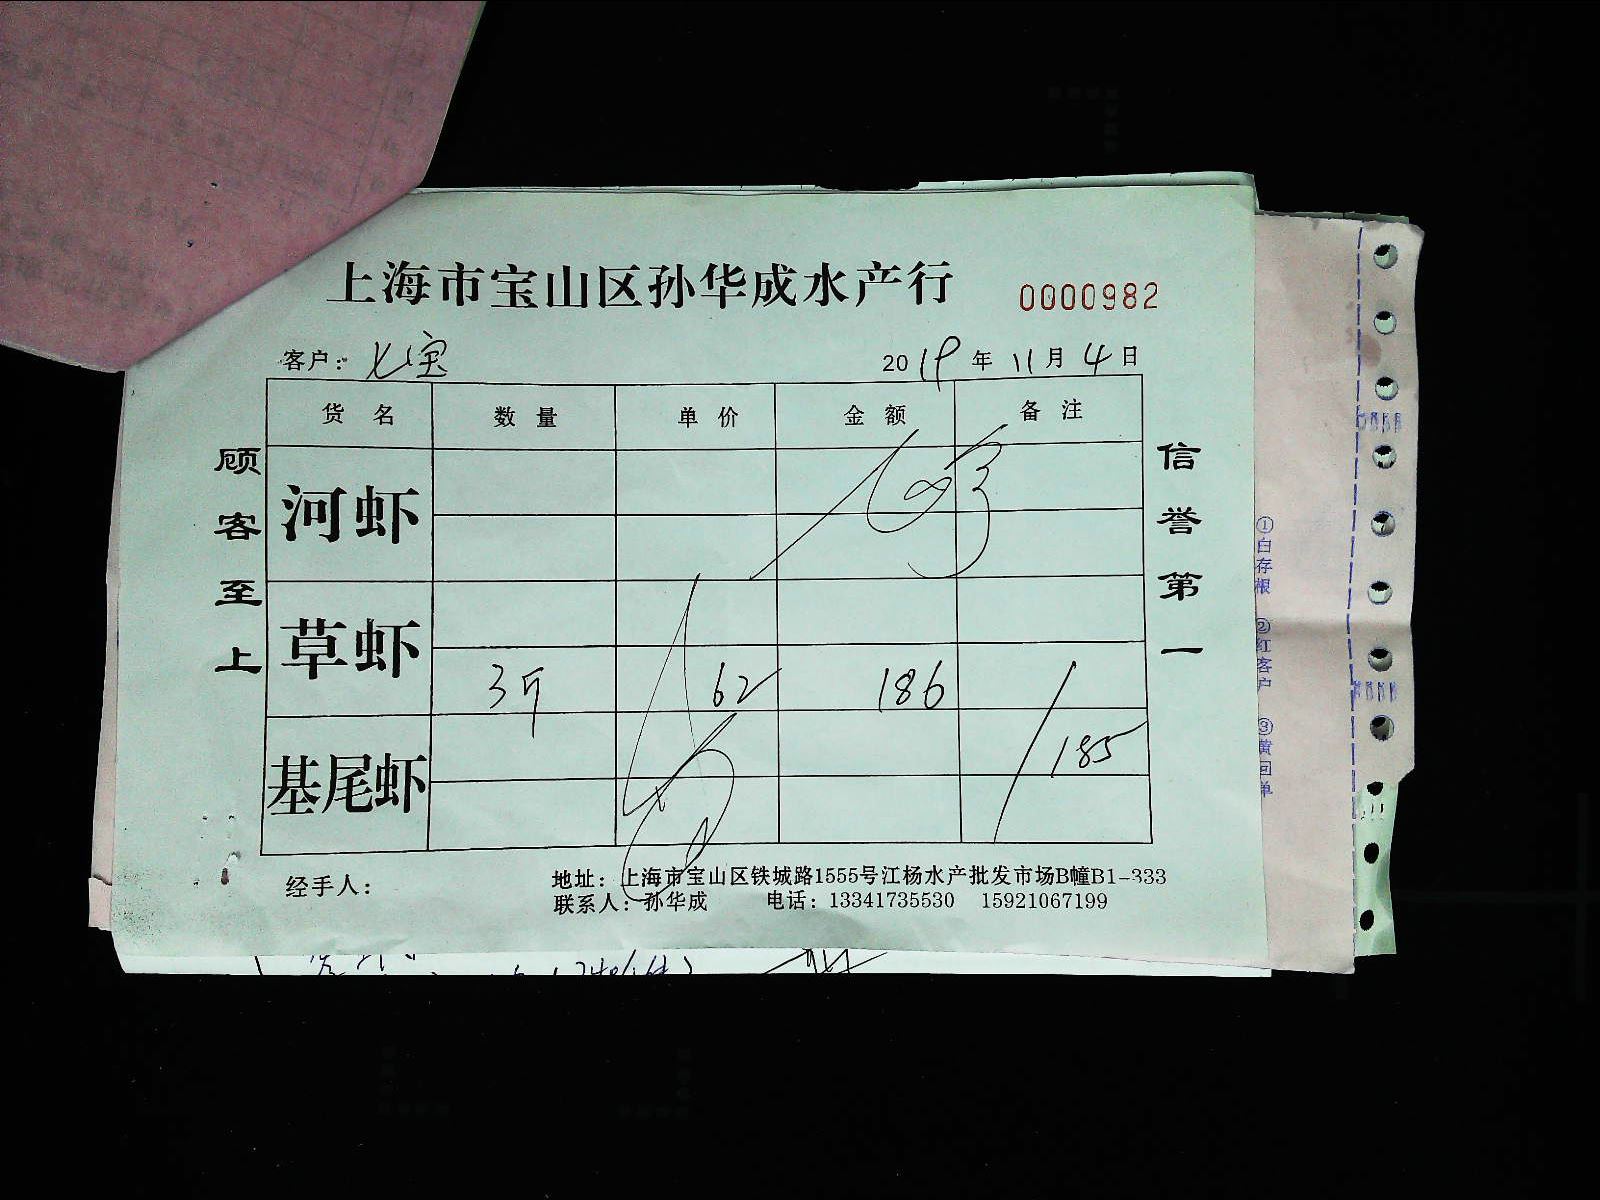 上海市宝山区孙华成水产行 0000982
客户：七宝 2019年11月4日
货名 数量 单价 金额 备注
河虾
草虾
3斤 62 186
185
基尾虾
顾客至上
信誉第一
①白存根 ②红客户 ③黄回单
经手人：
地址：上海市宝山区铁城路1555号江杨水产批发市场B幢B1-333
联系人：孙华成 电话：13341735530 15921067199